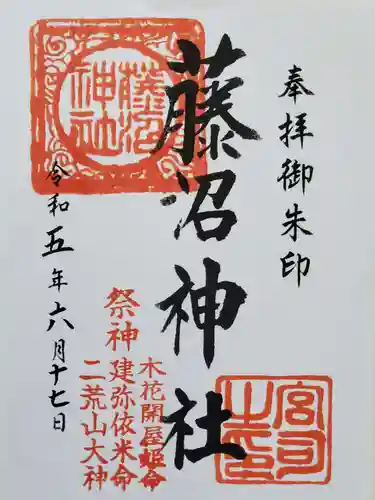 奉拝御朱印
藤沼神社
藤沼神社
宮司之印
祭神
木花開屋姫命
建弥依米命
二荒山大神
令和五年六月十七日